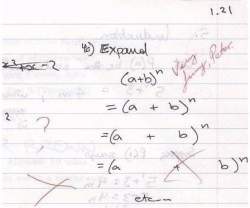 1.21
4b) Expand
(a+b)^n
Very funny, Peter.
= (a + b)^n
?
= (a + b)^n
= (a + b)^n
etc...